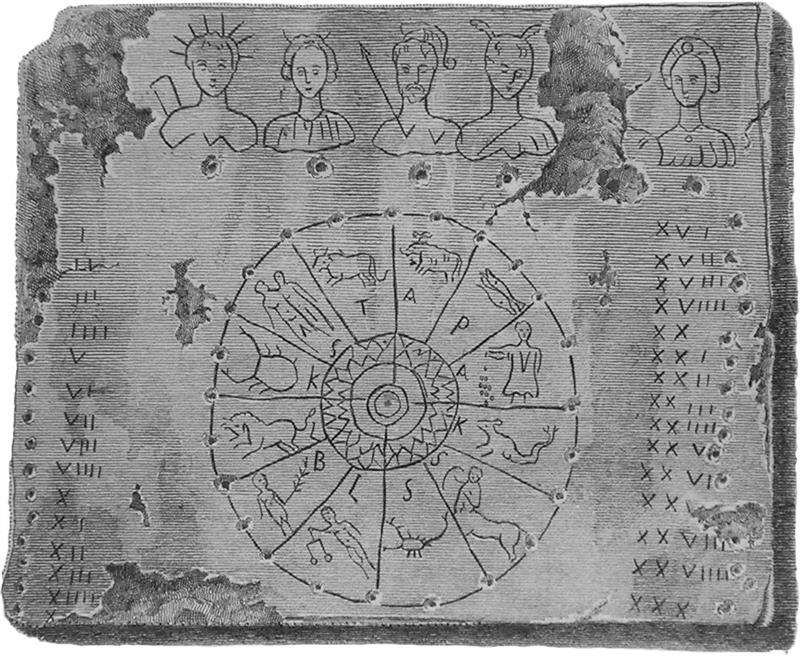 I
II
III
IIII
V
VI
VII
VIII
VIIII
X
XI
XII
XIII
XIIII
X
T
A
P
A
K
S
S
L
B
K
S
XVI
XVII
XVIII
XVIIII
XX
XXI
XXII
XXIII
XXIIII
XXV
XXVI
XX
XXVIII
XXVIIII
XXX